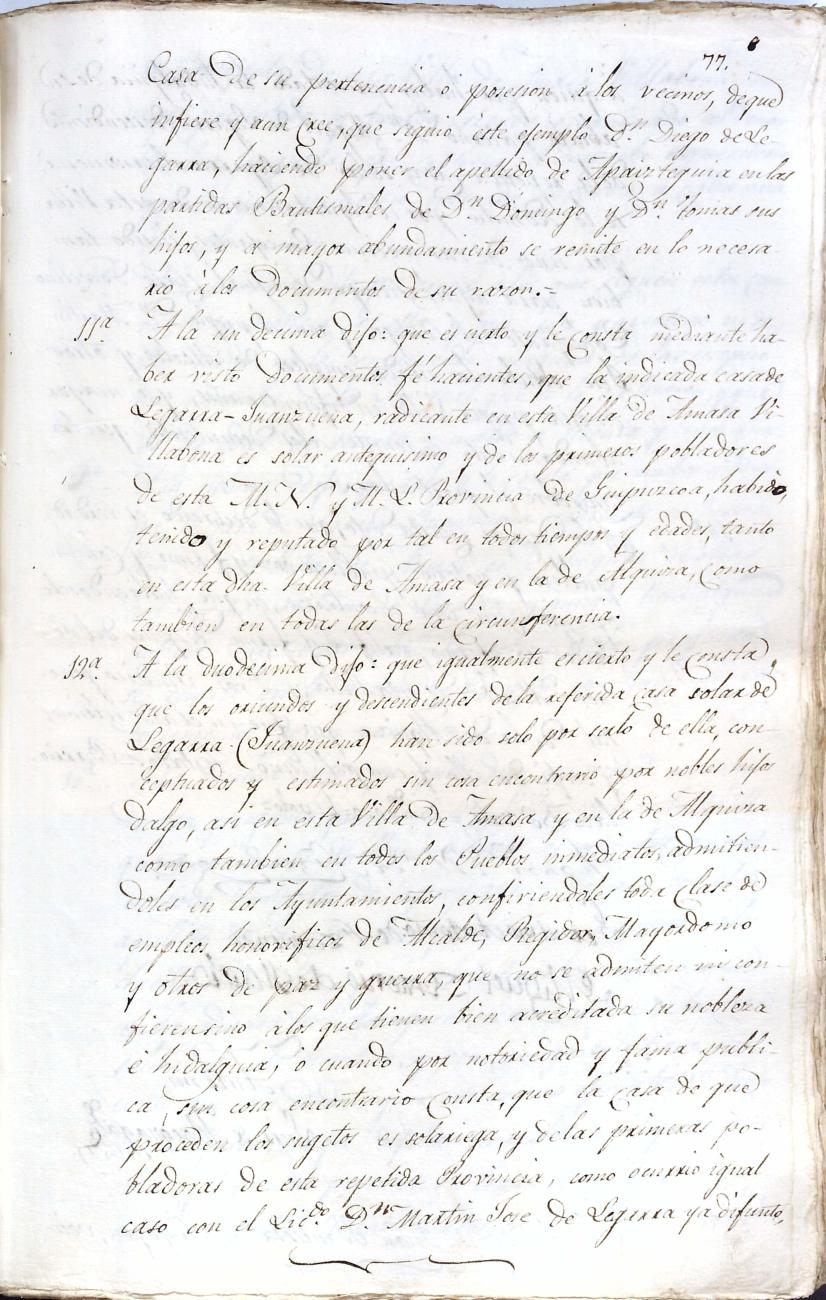 77.
Casa de su pertenencia ó posesion á los vecinos, de que
infiere y aun cree, que siguio este ejemplo Dn. Diego de Le-
garra, haciendo poner el apellido de Apaizteguia en las
partidas Bautismales de Dn. Domingo y Dn. Tomas sus
hijos, y á mayor abundamiento se remite en lo necesa-
rio á los documentos de su razon.-
11a. A la un decima dijo: que es cierto y le consta mediante ha-
ber visto documentos fé hacientes, que la indicada casa de
Legarra-Juanzuena, radicante en esta Villa de Amasa Vi-
llabona es solar antequisimo y de los primeros pobladores
de esta M. N. y M. L. Provincia de Guipuzcoa, habido,
tenido y reputado por tal en todos tiempos y edades, tanto
en esta dha. Villa de Amasa y en la de Alquiza, como
tambien en todas las de la circunferencia.
12a. A la duodecima dijo: que igualmente es cierto y le consta,
que los oriundos y descendientes de la referida casa solar de
Legarra (Juanzuena) han sido solo por serlo de ella, con-
ceptuados y estimados sin cosa encontrario por nobles hijos
dalgo, asi en esta Villa de Amasa y en la de Alquiza
como tambien en todos los Pueblos inmediatos, admitien-
doles en los Ayuntamientos, confiriendoles toda clase de
empleos honorificos de Alcalde, Regidor, Mayordomo
y otros de paz y guerra, que no se admiten ni con-
fieren sino á los que tienen bien acreditada su nobleza
é hidalguia, ó cuando por notoriedad y fama publi-
ca, sin cosa encontrario consta, que la casa de que
proceden los sugetos es solariega, y de las primeras po-
bladoras de esta repetida Provincia, como ocurrio igual
caso con el Licdo. Dn. Martin Jose de Legarra ya difunto,